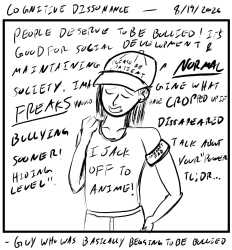 COGNITIVE DISSONANCE — 8/19/2026
PEOPLE DESERVE TO BE BULLIED! IT'S
GOOD FOR SOCIAL DEVELOPMENT &
MAINTAINING A NORMAL
SOCIETY. IMAGINE WHAT
FREAKS WOULD HAVE CROPPED UP IF
BULLYING DISAPPEARED
SOONER! TALK ABOUT
HIDING YOUR "POWER
LEVEL". TL;DR...
I JACK
OFF TO
ANIME!
- GUY WHO WAS BASICALLY BEGGING TO BE BULLIED